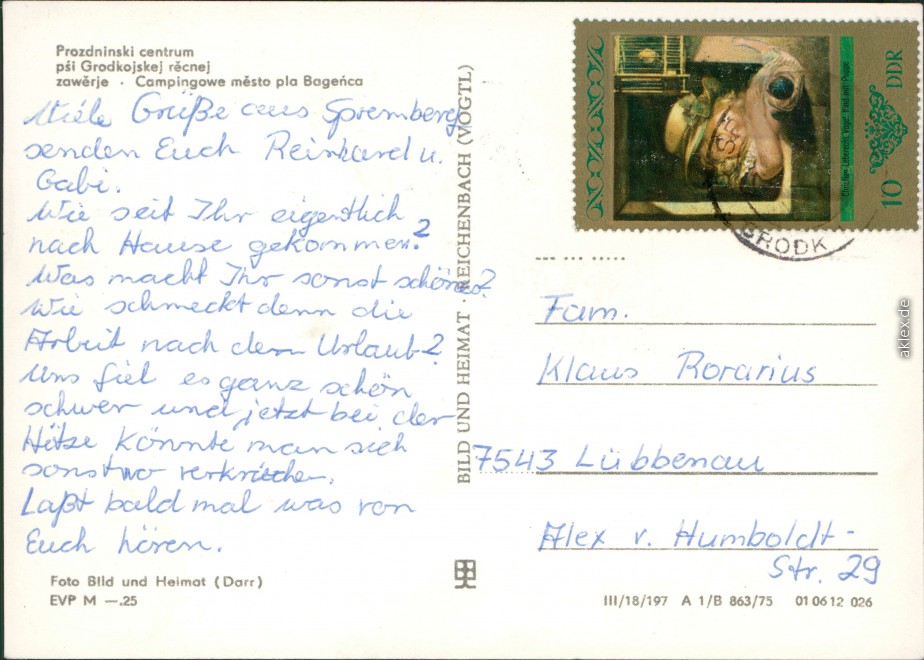 Prozdninski centrum
pśi Grodkojskej rěcnej
zawěrje · Campingowe město pla Bageńca
Viele Grüße aus Spremberg
senden Euch Reinhard u.
Gabi.
Wie seit Ihr eigentlich
nach Hause gekommen?
Was macht Ihr sonst schönes?
Wie schmeckt denn die
Arbeit nach dem Urlaub?
Uns fiel es ganz schön
schwer und jetzt bei der
Hitze könnte man sich
sonstwo verkriechen.
Laßt bald mal was von
Euch hören.
Foto Bild und Heimat (Darr)
EVP M —.25
BILD UND HEIMAT · REICHENBACH (VOGTL)
DDR
10
Christian Leberecht Vogel: Kind mit Puppe
GRODK
Fam.
Klaus Rorarius
7543 Lübbenau
Alex v. Humboldt-
Str. 29
III/18/197 A 1/B 863/75 01 06 12 026
aklex.de